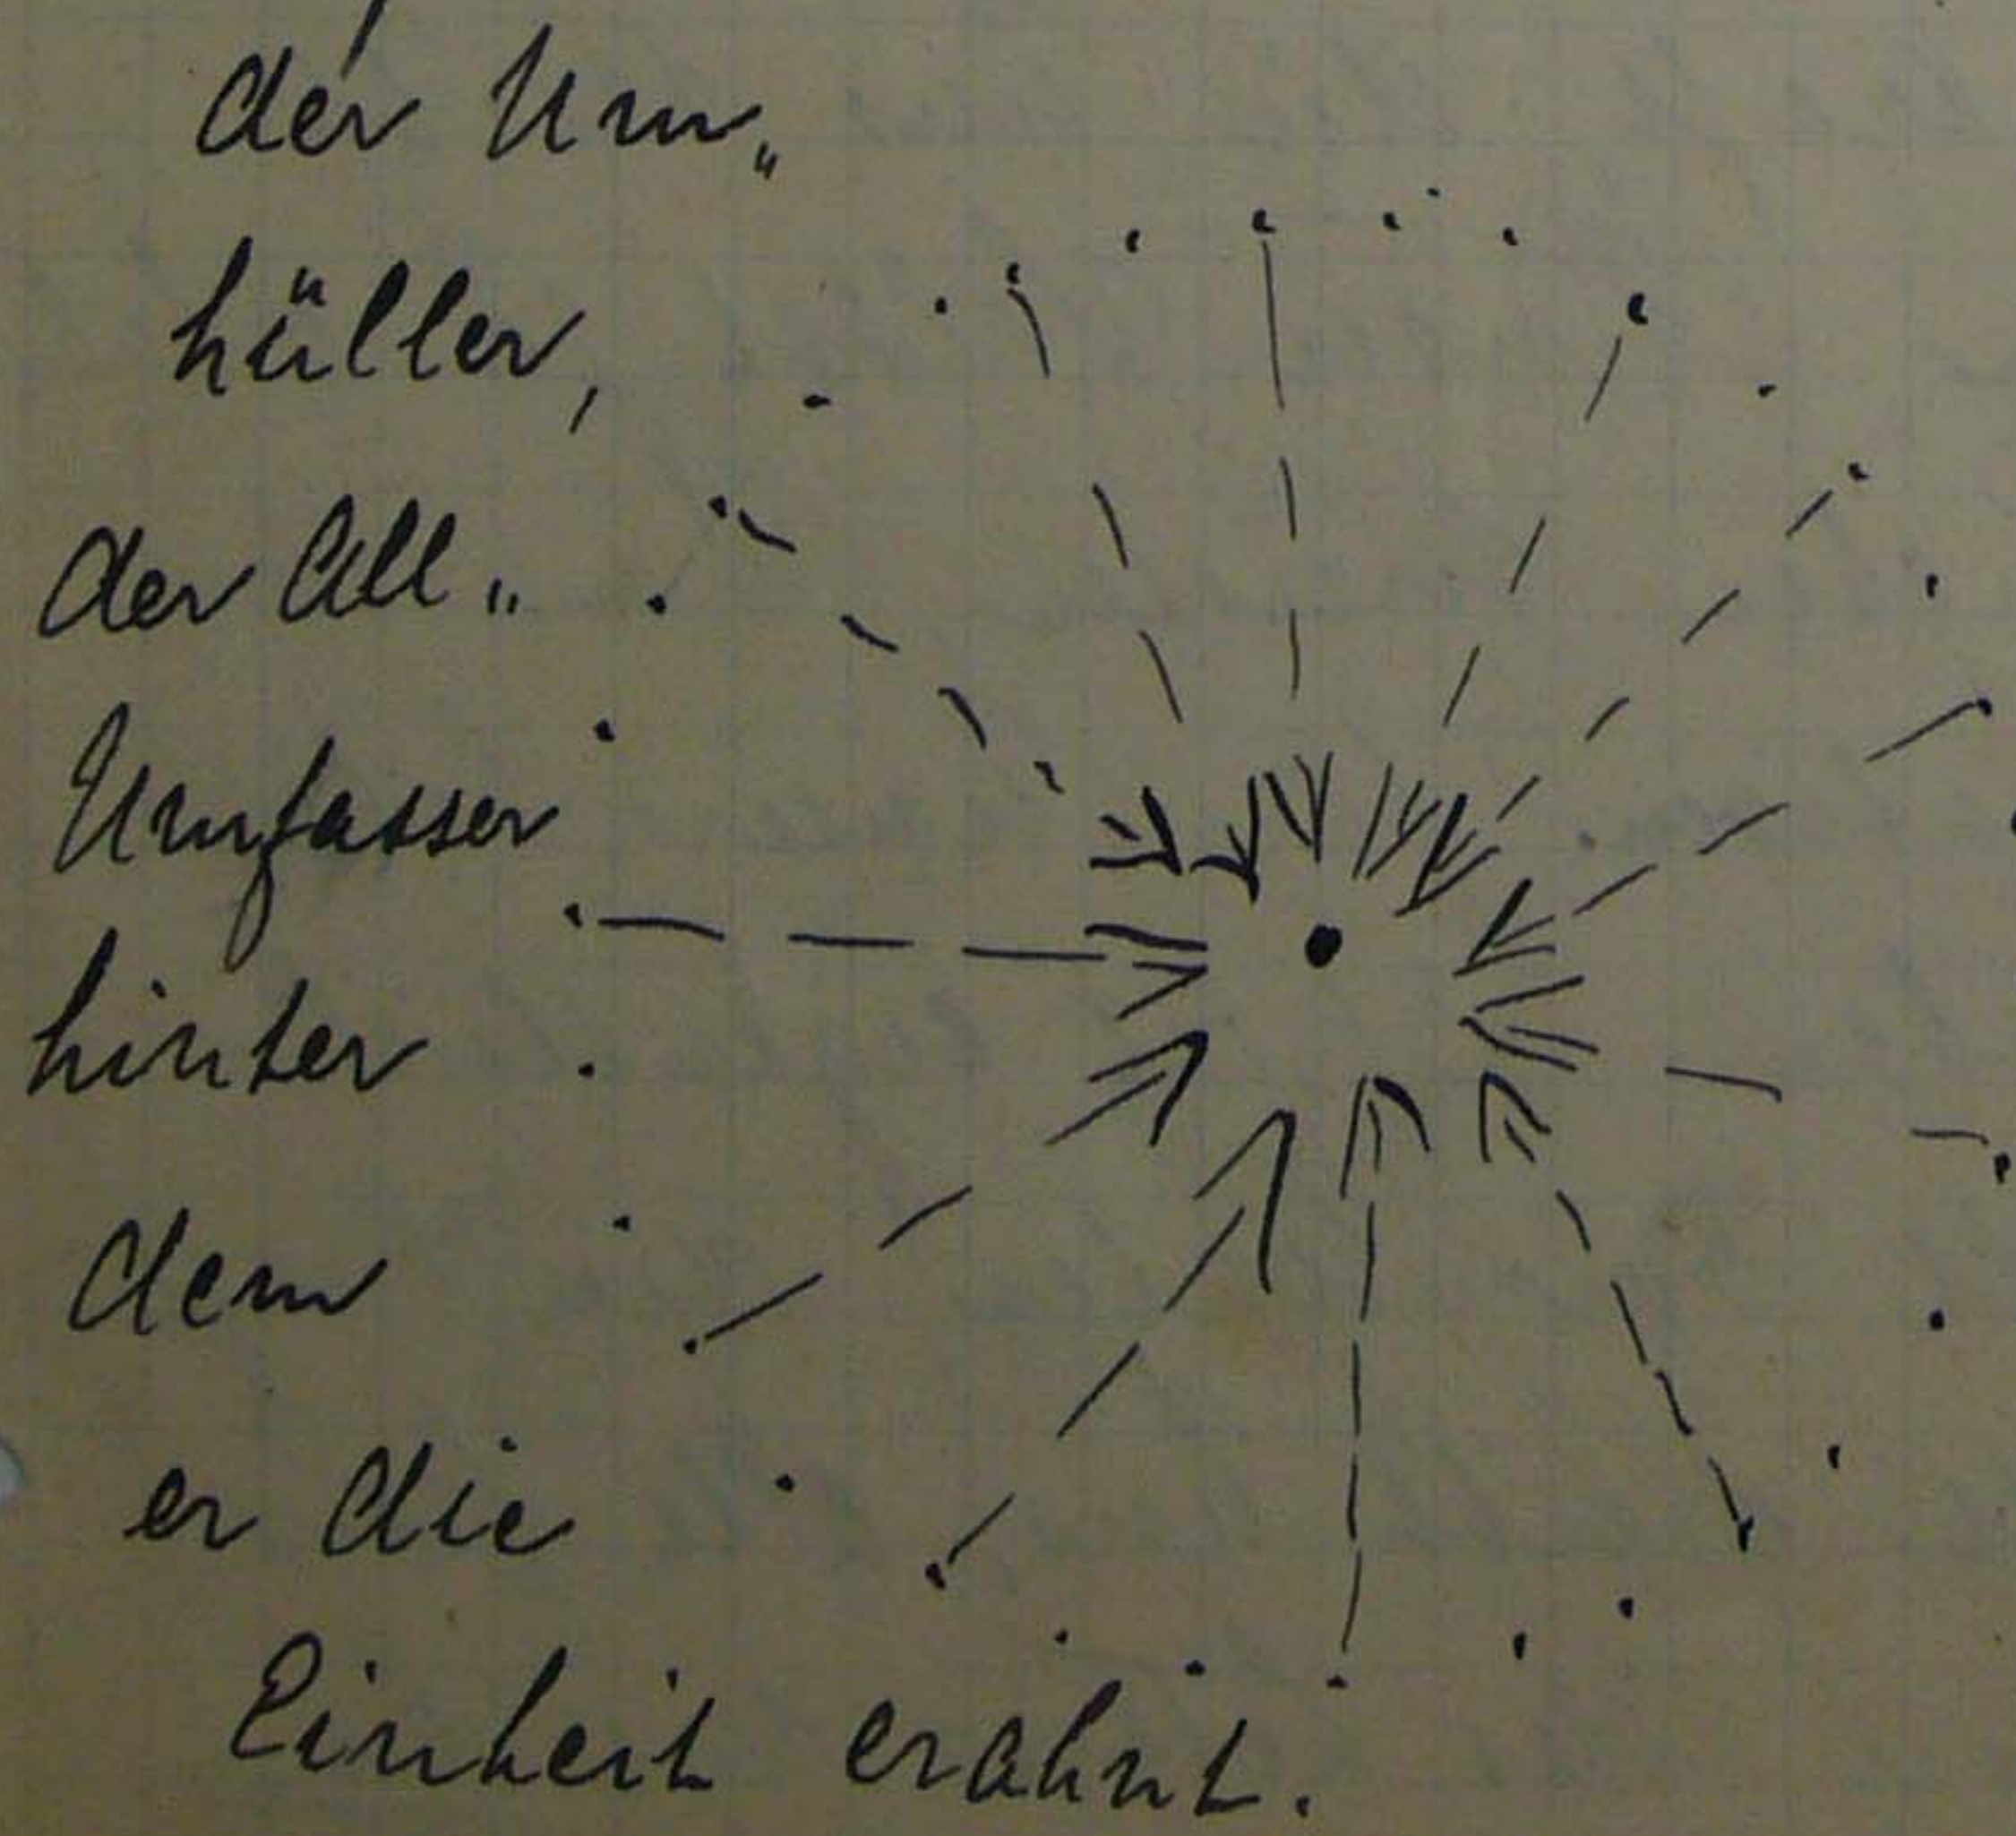 der Um„
hüller,
der All„
Umfasser
hinter
dem
er die
Einheit erahnt.